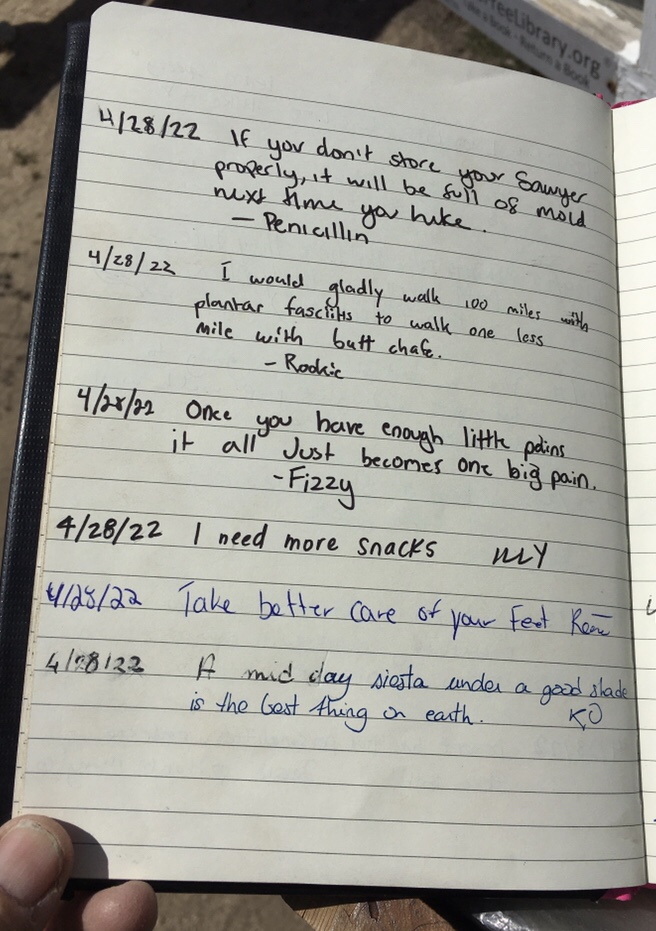 feeLibrary.org
Take a Book · Return a Book
4/28/22 If you don't store your Sawyer
properly, it will be full of mold
next time you hike.
— Penicillin
4/28/22 I would gladly walk 100 miles with
plantar fasciitis to walk one less
mile with butt chafe.
- Rookie
4/28/22 Once you have enough little pains
it all Just becomes one big pain.
-Fizzy
4/28/22 I need more snacks
4/28/22 Take better care of your feet
4/28/22 A mid day siesta under a good shade
is the best thing on earth. KO